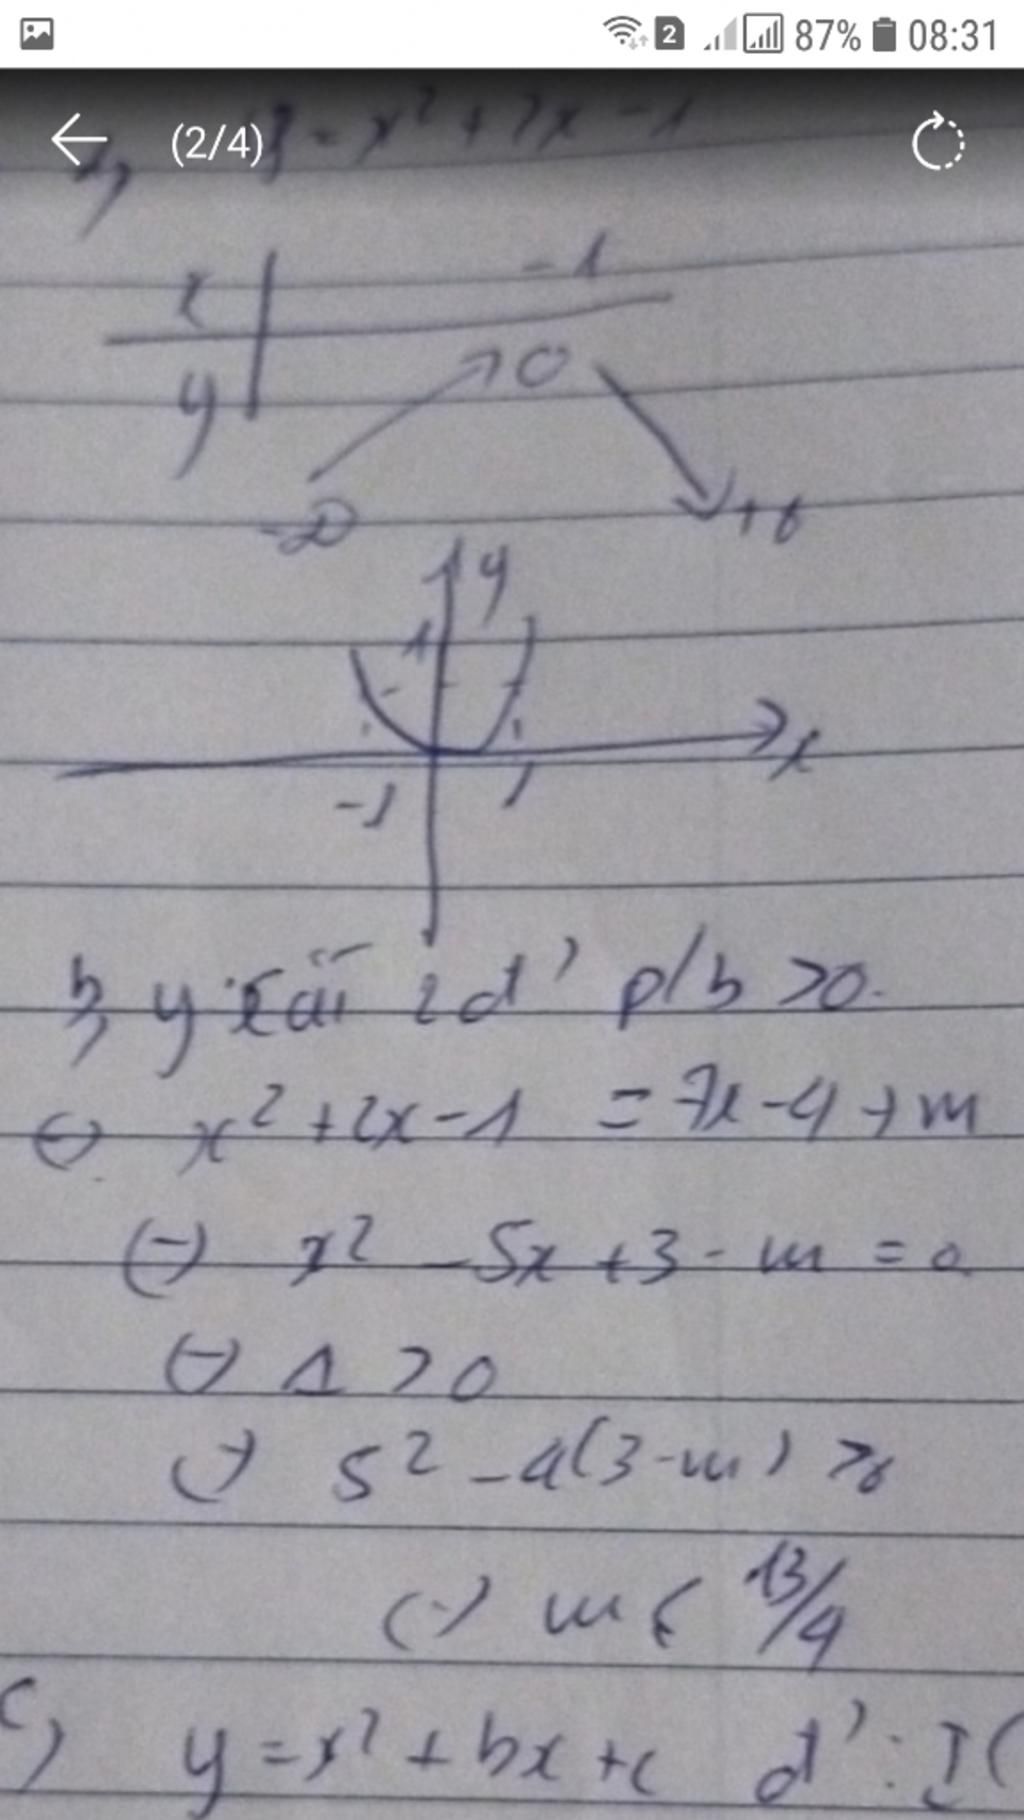 2 87% 08:31
(2/4) = x² + 2x - 1
x -1
y 0
-∞
y
1
x
-1 1
b, y tại 2 đ' p/b >0.
(=) x² + 2x - 1 = 7x - 4 + m
(=) x² - 5x + 3 - m = 0
(=) Δ > 0
(=) 5² - 4(3-m) >0
(=) m < 13/4
c, y = x² + bx + c đ' : I(